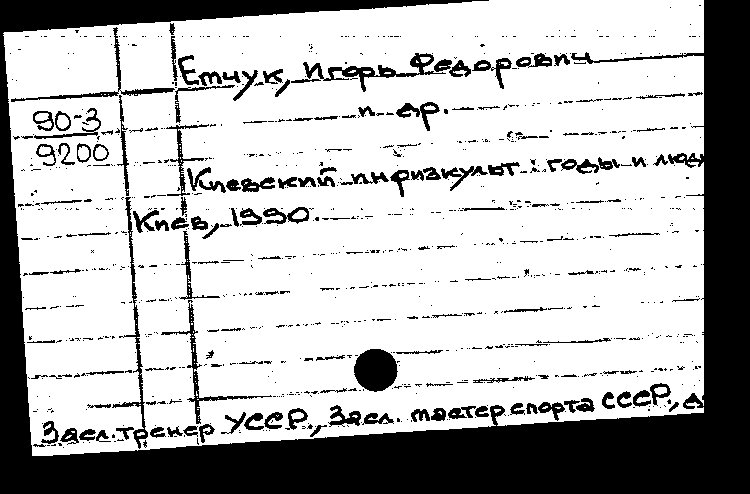 Емчук, Игорь Федорович
90-3
и др.
9200
Киевский инфизкульт : годы и люд
Киев, 1990.
Засл. тренер УССР., Засл. мастер спорта СССР., д